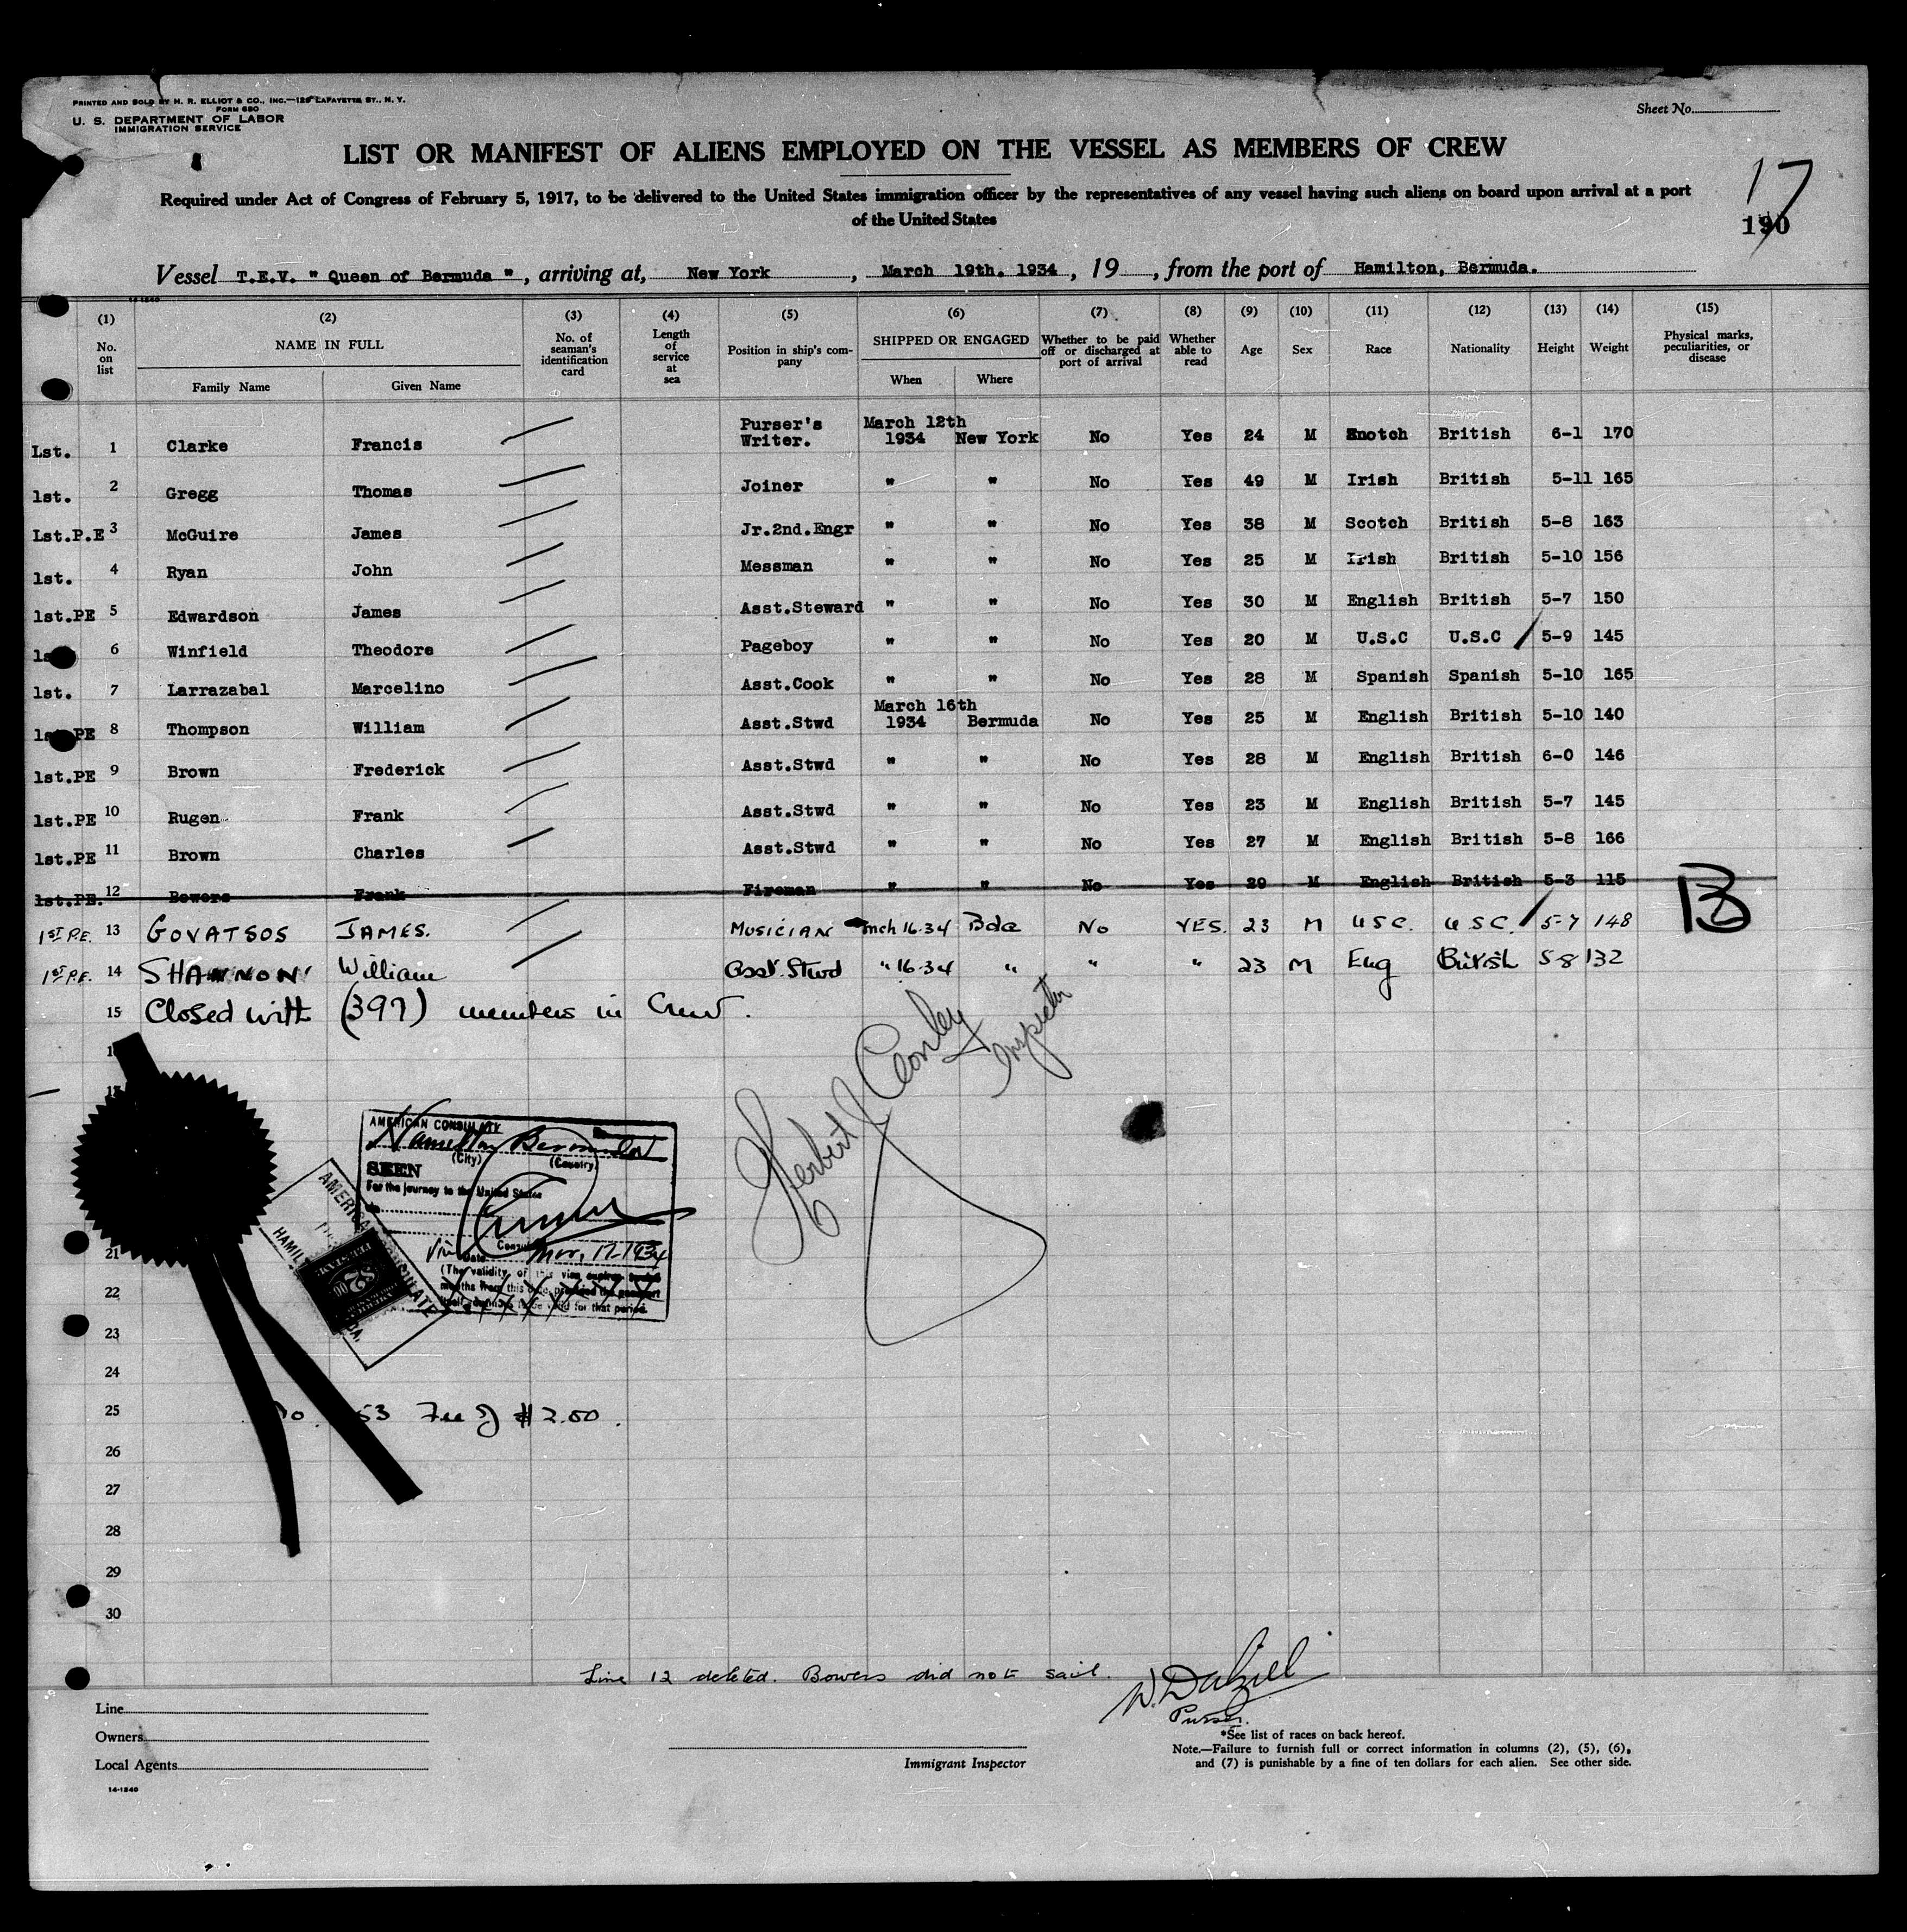 PRINTED AND SOLD BY H. R. ELLIOT & CO., INC.—129 LAFAYETTE ST., N. Y.
FORM 680
U. S. DEPARTMENT OF LABOR
IMMIGRATION SERVICE
Sheet No.
LIST OR MANIFEST OF ALIENS EMPLOYED ON THE VESSEL AS MEMBERS OF CREW
Required under Act of Congress of February 5, 1917, to be delivered to the United States immigration officer by the representatives of any vessel having such aliens on board upon arrival at a port
of the United States
17
190
Vessel T.E.V. " Queen of Bermuda ", arriving at, New York, March 19th. 1934, 19, from the port of Hamilton, Bermuda.
(1) (2) (3) (4) (5) (6) (7) (8) (9) (10) (11) (12) (13) (14) (15)
No. on list NAME IN FULL Family Name Given Name No. of seaman's identification card Length of service at sea Position in ship's company SHIPPED OR ENGAGED When Where Whether to be paid off or discharged at port of arrival Whether able to read Age Sex Race Nationality Height Weight Physical marks, peculiarities, or disease
Lst. 1 Clarke Francis Purser's Writer. March 12th 1934 New York No Yes 24 M Snotch British 6-1 170
1st. 2 Gregg Thomas Joiner " " No Yes 49 M Irish British 5-11 165
Lst.P.E 3 McGuire James Jr.2nd.Engr " " No Yes 38 M Scotch British 5-8 163
1st. 4 Ryan John Messman " " No Yes 25 M Irish British 5-10 156
1st.PE 5 Edwardson James Asst.Steward " " No Yes 30 M English British 5-7 150
6 Winfield Theodore Pageboy " " No Yes 20 M U.S.C U.S.C 5-9 145
1st. 7 Larrazabal Marcelino Asst.Cook " " No Yes 28 M Spanish Spanish 5-10 165
PE 8 Thompson William Asst.Stwd March 16th 1934 Bermuda No Yes 25 M English British 5-10 140
1st.PE 9 Brown Frederick Asst.Stwd " " No Yes 28 M English British 6-0 146
1st.PE 10 Rugen Frank Asst.Stwd " " No Yes 23 M English British 5-7 145
1st.PE 11 Brown Charles Asst.Stwd " " No Yes 27 M English British 5-8 166
1st.PE. 12 Bowers Frank Fireman " " No Yes 29 M English British 5-3 115
1ST P.E. 13 GOVATSOS JAMES. MUSICIAN Mch 16.34 Bda No YES. 23 M USC. USC. 5-7 148
1ST P.E. 14 SHANNON William Asst. Stwd " 16.34 " " " 23 M Eng British 5-8 132
15 Closed with (397) members in Crew.
Herbert J Conley Inspector
AMERICAN CONSULATE
Hamilton Bermuda
(City) (Country)
SEEN
For the journey to the United States
Consul
Date Mar. 17-1934
(The validity of this visa expires
months from this date, provided the passport
for that period.
AMERICAN CONSULATE
21
22
23
24
25 No. 53 Fee of $2.00.
26
27
28
29
30
Line 12 deleted. Bowers did not sail.
W. Dalziel
Purser.
Line
Owners
Local Agents
14-1240
Immigrant Inspector
*See list of races on back hereof.
Note.—Failure to furnish full or correct information in columns (2), (5), (6),
and (7) is punishable by a fine of ten dollars for each alien. See other side.